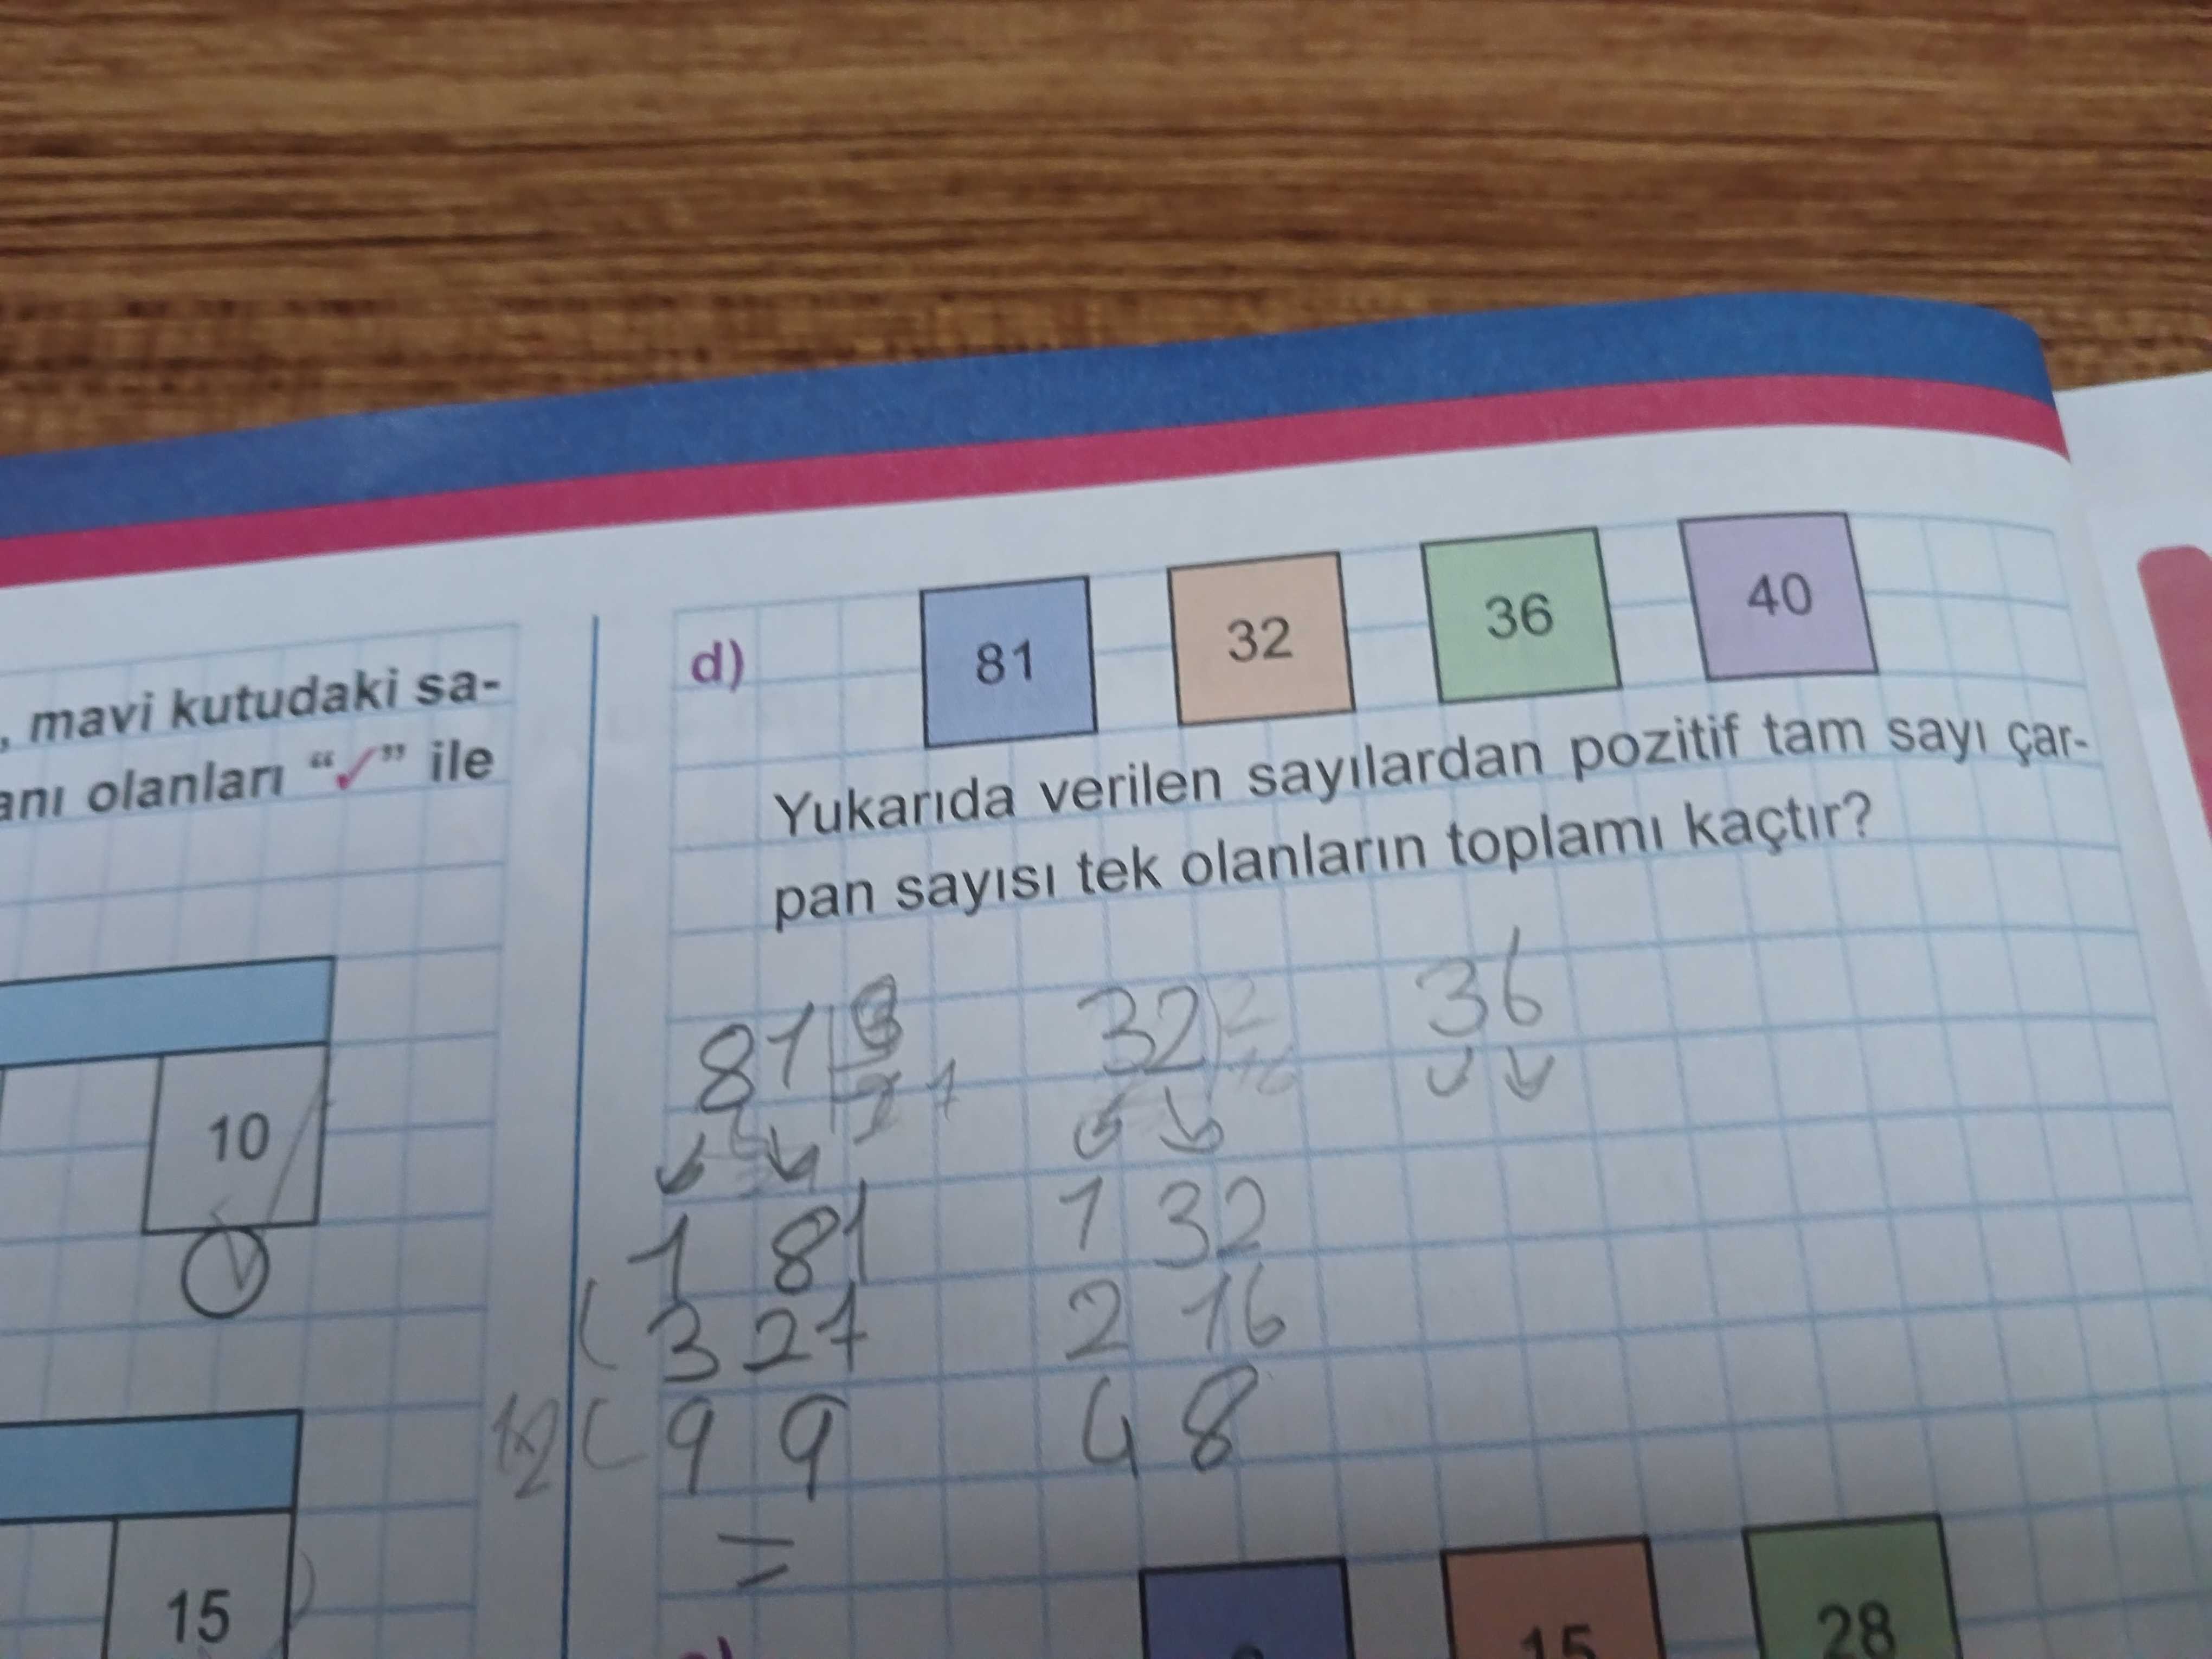 , mavi kutudaki sa-
anı olanları “✓” ile
10
15
d)
81 32 36 40
Yukarıda verilen sayılardan pozitif tam sayı çar-
pan sayısı tek olanların toplamı kaçtır?
81 32 2 36
16
1 81 1 32
3 27 2 16
9 9 4 8
=
15 28